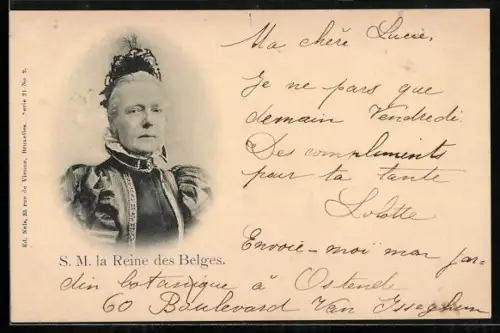 Ma chère Lucie,
Je ne pars que
demain Vendredi
Des compliments
pour ta tante
Lolotte
Envoie-moi mon jar-
din botanique à Ostende
60 Boulevard Van Isseghem
S. M. la Reine des Belges.
Ed. Nels, 35 rue de Vienne, Bruxelles. Serie 21 No 2.